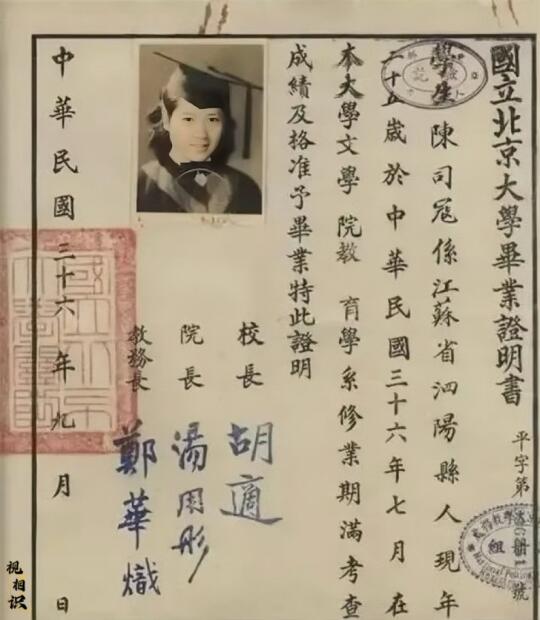 國立北京大學畢業證明書
平字第
號
學生陳司寇係江蘇省泗陽縣人現年
二十五歲於中華民國三十六年七月在
本大學文學院教育學系修業期滿考查
成績及格准予畢業特此證明
校長 胡適
院長 湯用彤
教務長 鄭華熾
中華民國三十六年九月 日
組
視相识